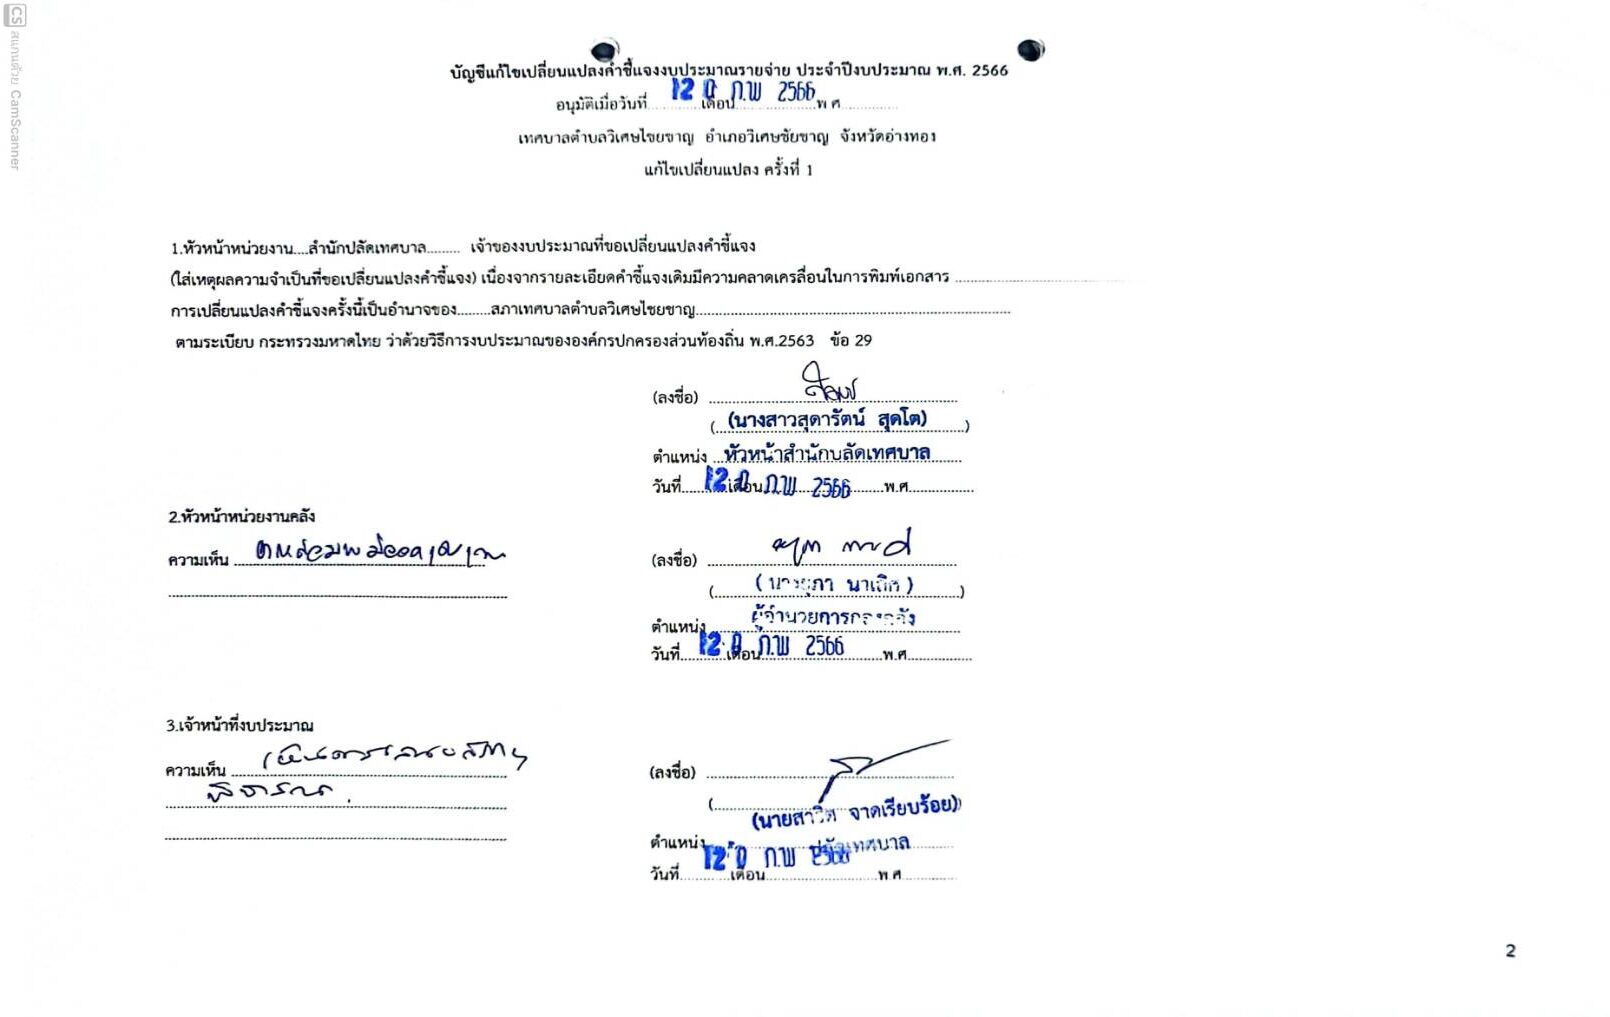 CS สแกนด้วย CamScanner
บัญชีแก้ไขเปลี่ยนแปลงคำชี้แจงงบประมาณรายจ่าย ประจำปีงบประมาณ พ.ศ. 2566
อนุมัติเมื่อวันที่..........เดือน..........พ ศ.......... ก.พ 2566
เทศบาลตำบลวิเศษไชยชาญ อำเภอวิเศษชัยชาญ จังหวัดอ่างทอง
แก้ไขเปลี่ยนแปลง ครั้งที่ 1
1.หัวหน้าหน่วยงาน....สำนักปลัดเทศบาล......... เจ้าของงบประมาณที่ขอเปลี่ยนแปลงคำชี้แจง
(ใส่เหตุผลความจำเป็นที่ขอเปลี่ยนแปลงคำชี้แจง) เนื่องจากรายละเอียดคำชี้แจงเดิมมีความคลาดเคลื่อนในการพิมพ์เอกสาร
การเปลี่ยนแปลงคำชี้แจงครั้งนี้เป็นอำนาจของ.........สภาเทศบาลตำบลวิเศษไชยชาญ
ตามระเบียบ กระทรวงมหาดไทย ว่าด้วยวิธีการงบประมาณขององค์กรปกครองส่วนท้องถิ่น พ.ศ.2563 ข้อ 29
(ลงชื่อ)
(นางสาวสุดารัตน์ สุดโต)
ตำแหน่ง หัวหน้าสำนักปลัดเทศบาล
วันที่..........เดือน..........พ.ศ.......... ก.พ 2566
2.หัวหน้าหน่วยงานคลัง
ความเห็น
(ลงชื่อ)
(นางยุภา นาเลิศ)
ตำแหน่ง ผู้อำนวยการกองคลัง
วันที่..........เดือน..........พ.ศ.......... ก.พ 2566
3.เจ้าหน้าที่งบประมาณ
ความเห็น เห็นควรเสนอสภาฯ
พิจารณา
(ลงชื่อ)
(นายสาวิต จาดเรียบร้อย)
ตำแหน่ง ปลัดเทศบาล
วันที่..........เดือน..........พ ศ.......... ก.พ 2566
2